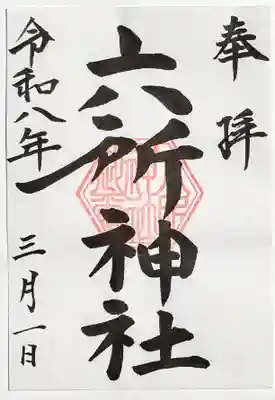 奉拝
六所神社
令和八年 三月一日